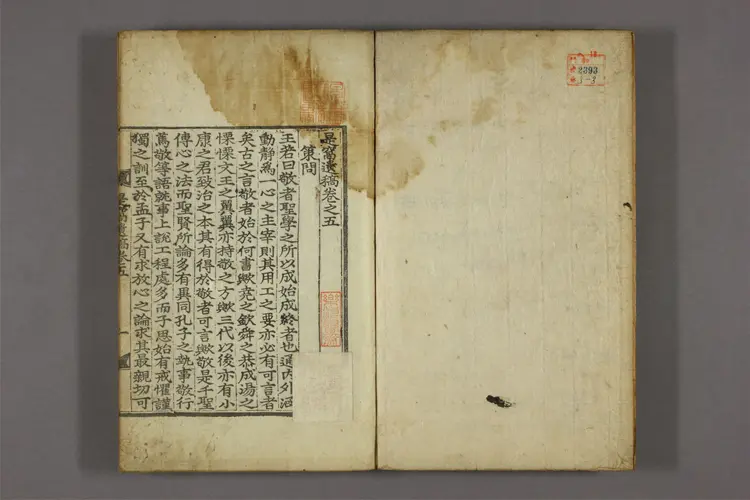 是窩遺稿卷之五
策問
王若曰敬者聖學之所以成始成終者也通內外涵
動靜爲一心之主宰則其用工之要亦必有可言者
矣古之言敬者始於何書歟堯之欽舜之恭成湯之
慄慄文王之翼翼亦持敬之方歟三代以後亦有小
康之君致治之本其有得於敬者可言歟敬是千聖
傳心之法而聖賢所論多有異同孔子之執事敬行
篤敬等語就事上說工程處多而子思始有戒懼謹
獨之訓至於孟子又有求放心之論求其最親切可
是窩遺稿卷五
一
2393
1-3